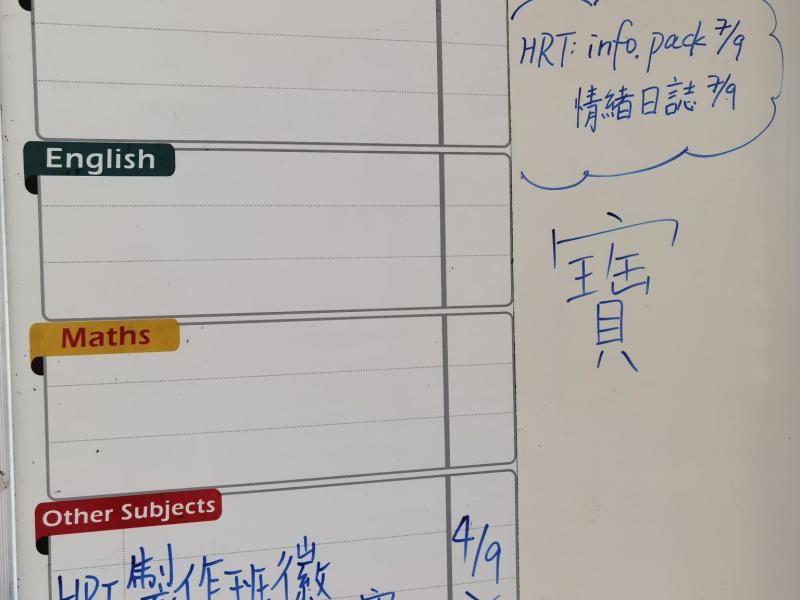 HRT: info. pack 7/9
情緒日誌 7/9
English
寶
Maths
Other Subjects
HRT 製作班徽 4/9